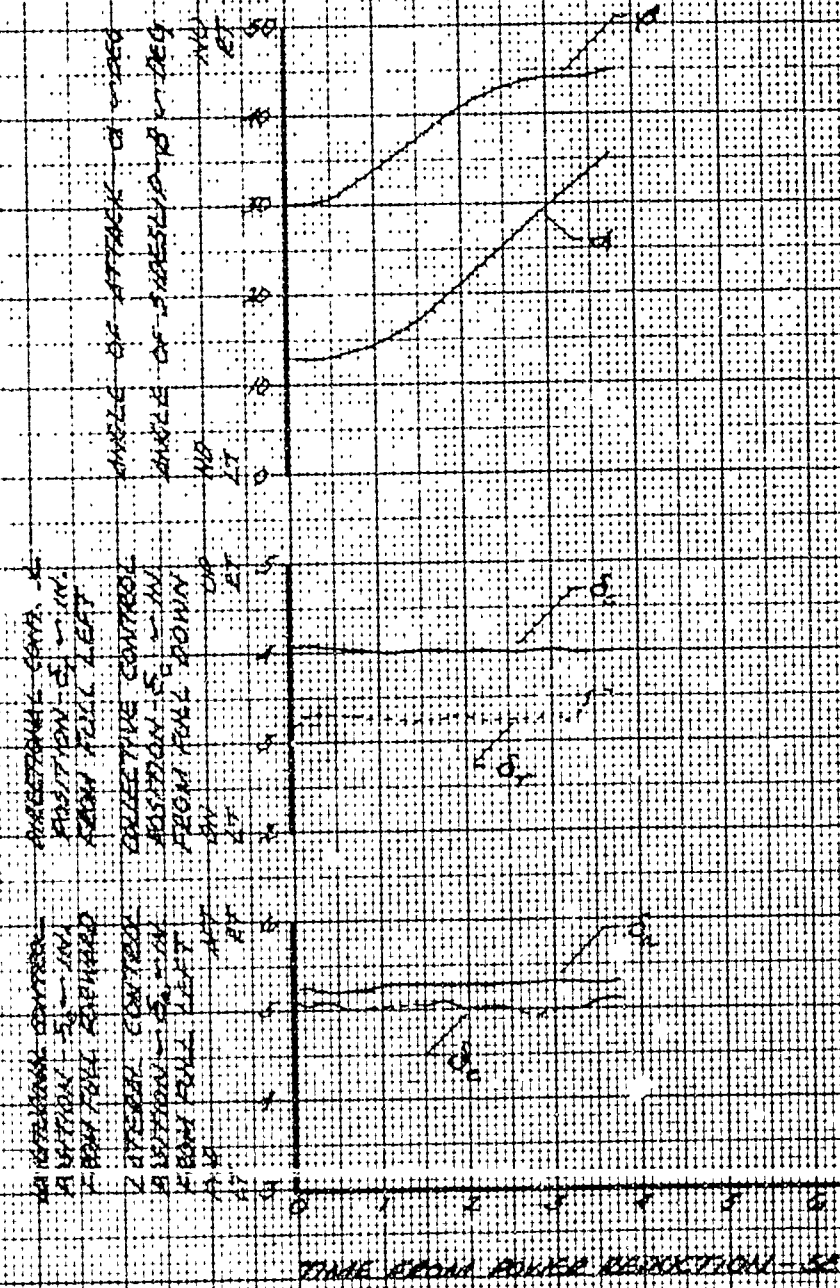 ANGLE OF ATTACK α ~ DEG
ANGLE OF SIDESLIP β ~ DEG
NU
RT
ND
LT
50
40
30
20
10
0
β
α
DIRECTIONAL CONTROL
POSITION - δr ~ IN.
FROM FULL LEFT
COLLECTIVE CONTROL
POSITION - δc ~ IN.
FROM FULL DOWN
UP
RT
DN
LT
5
4
3
2
δc
δr
CONTROL
POSITION - ~ IN.
FROM FULL FORWARD
LATERAL CONTROL
POSITION - ~ IN.
FROM FULL LEFT
AFT
RT
LT
6
5
4
0
1
2
3
4
5
6
TIME FROM POWER REDUCTION - SE